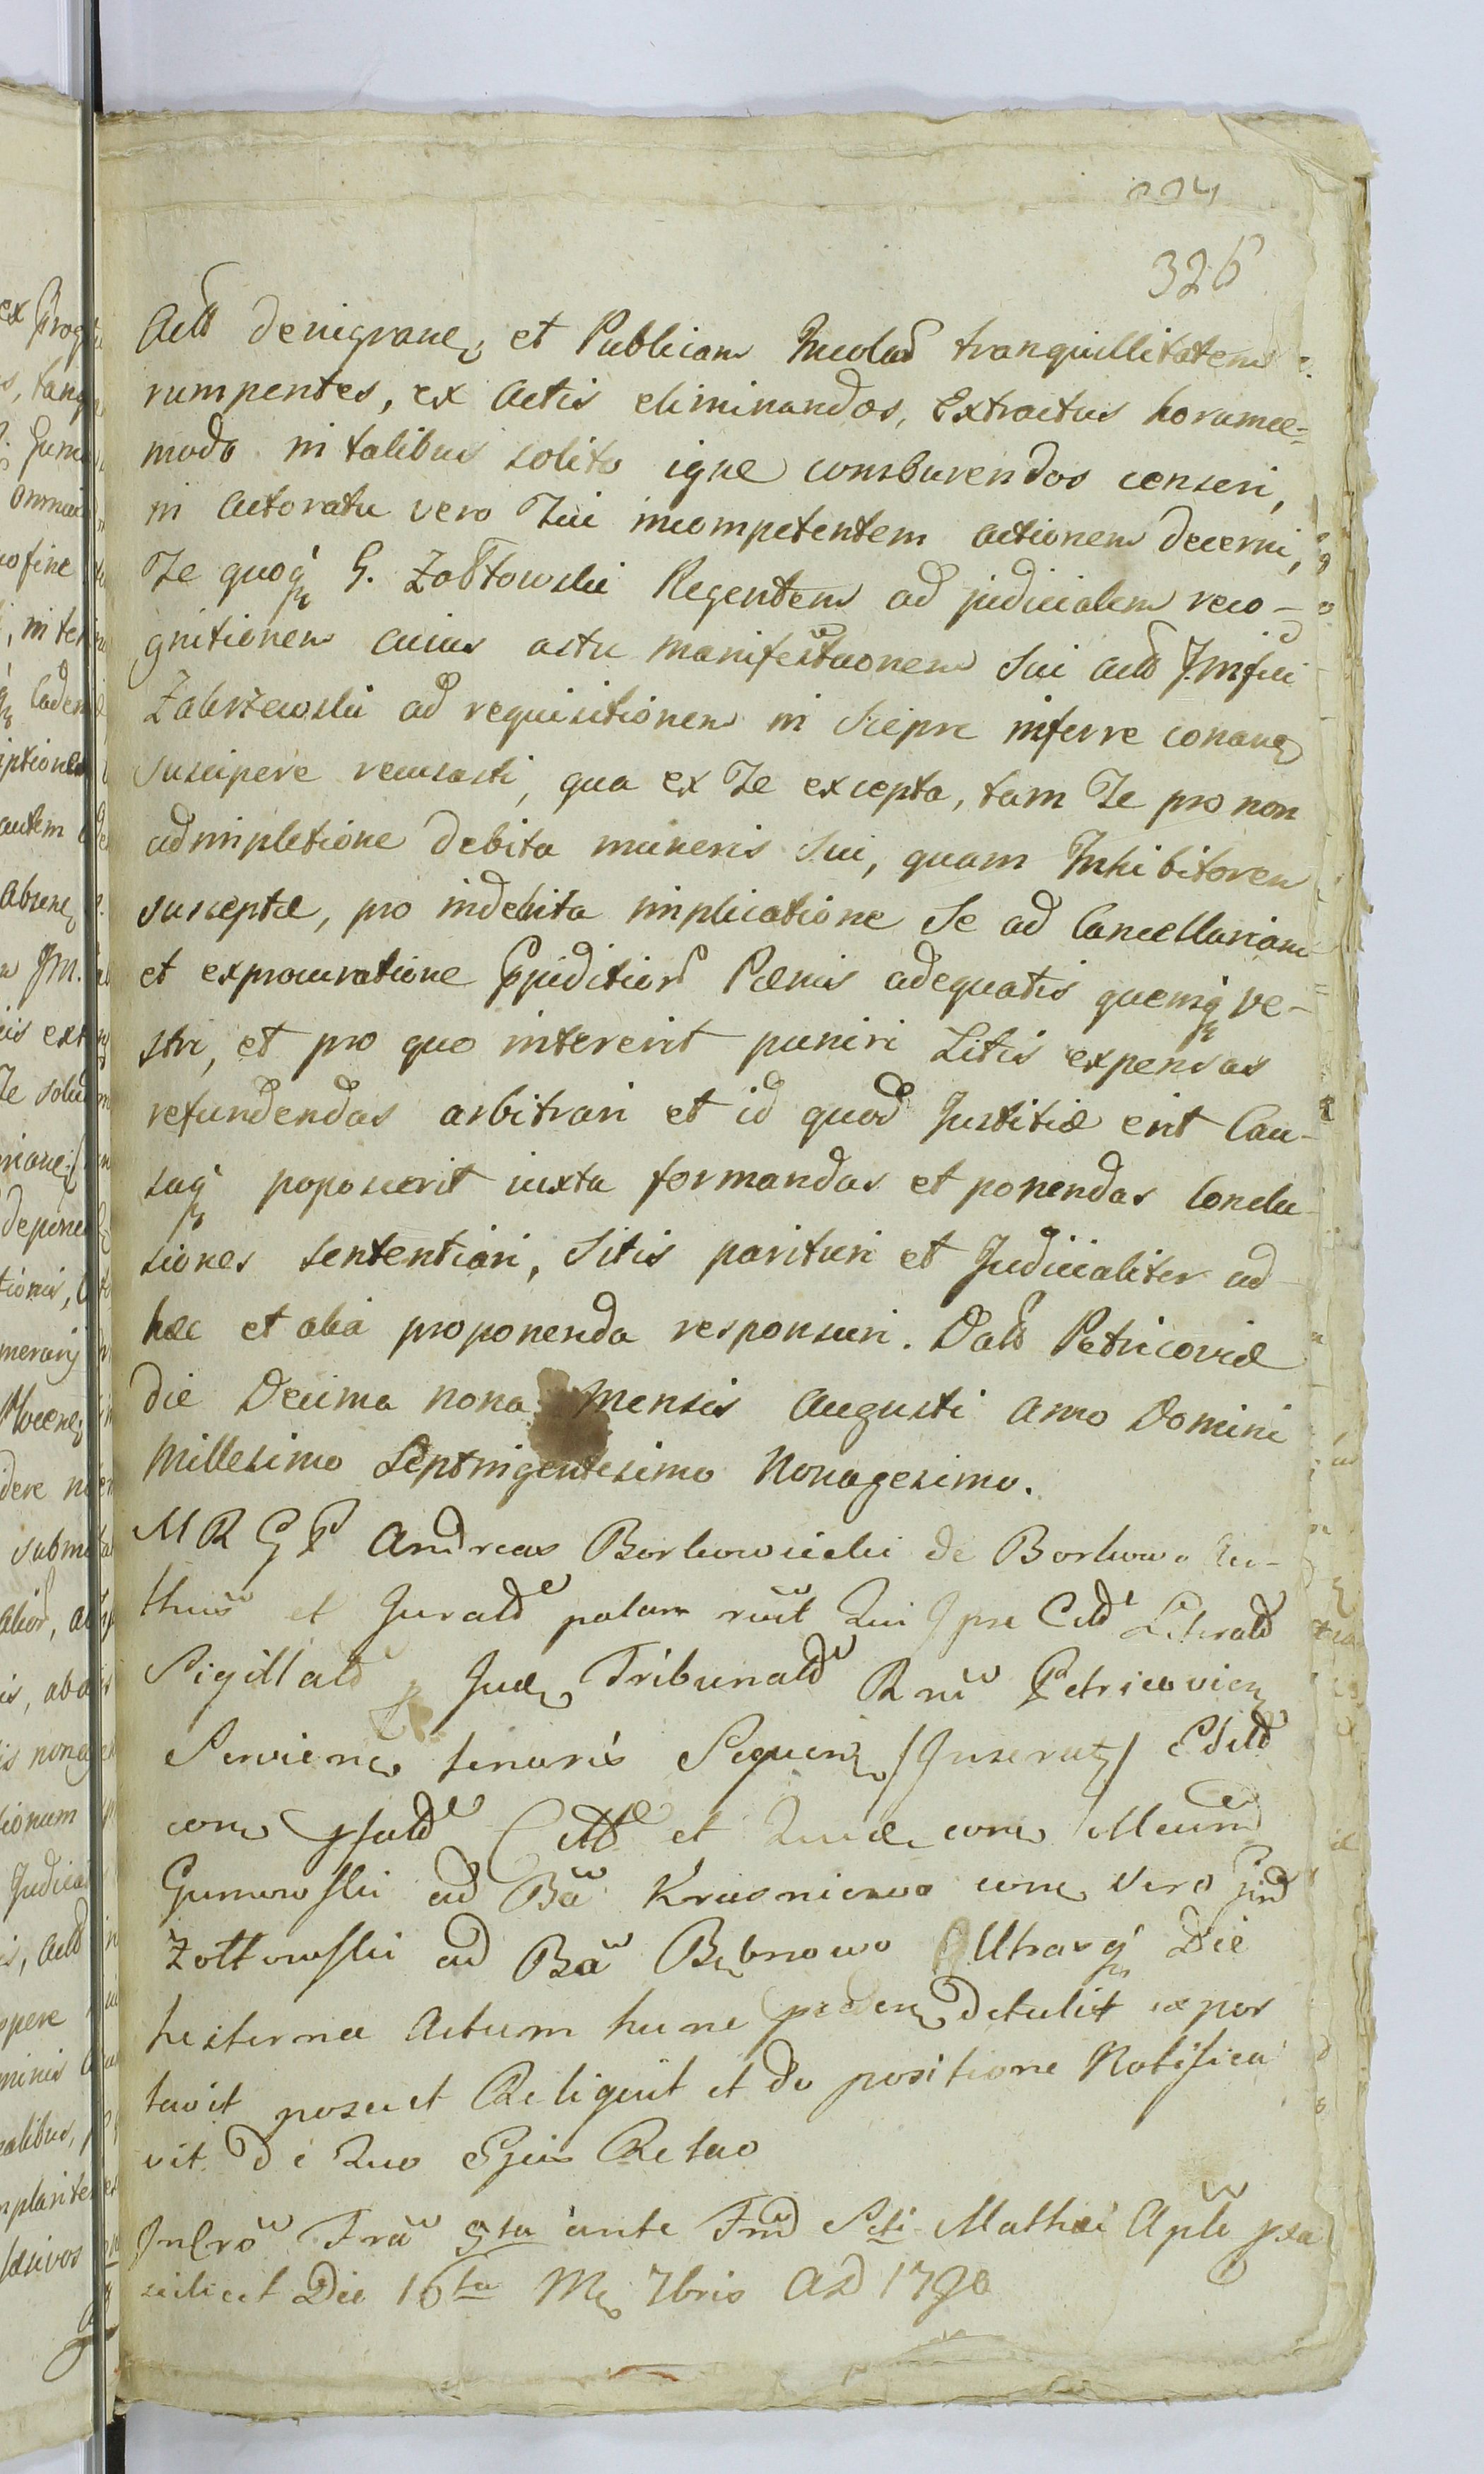 224
326
Actō denigranē et Publicam Incolar̄ tranquillitatem
rumpentes, ex Actis eliminandos, Extractus horumce=
modo in talibus solito igne comburendos censeri,
in Actoratu vero Tui incompetentem actionem decerni,
Te quoq̄ G. Zołtowski Regentem ad judicialem reco-
gnitionem cuius astu manifestationem Sui Actō J. Mfci
Zakrzewski ad requisitionem in Siepre inferre conanē
suscipere recusasti, qua ex Te excepta, tam Te pro non
adimpletione debita muneris Sui, quam Inhibitorem
susceptæ, pro indebita implicatione Se ad Cancellariam
et exprocuratione Expeditior̄ Pœnis adequatis quemq̄ ve-
stri, et pro quo intererit puniri Litis expensas
refundendas arbitrari et id quod Justitiæ erit Cau-
saq̄ poposcerit iuxta formandas et ponendas Conclu-
siones sententiari, Sitis parituri et Judicialiter ad
hæc et alia proponenda responsuri. Datō Petricoviæ
die Decima nona Mensis Augusti Anno Domini
Millesimo Septingentesimo Nonagesimo.
M R G P Andreas Borkowicki de Borkowo Au-
thūs et Juratō palam rūit Qui Ipse Citō Literatō
Sigillatō p Jud Tribunalō R ni Petricovien
Servienō tenoris Sequenō /Inserut/ Editō
com psatō Citō et Quidē com Mcum
Gumowski ad Bā Krasniewo com vero Gnd
Zołtowski ad Bā Bębnowo Utharq̄ Die
hesterna Actum hunc pædenō detulit expor
tavit posuit Reliquit et de positione Notifica
vit De Quo Ejus Relao
In Crō Frā 5ta ante Fm̄ Scti Mathæi Apli pxa
scilicet Die 16ta Mē 7bris AD 1790